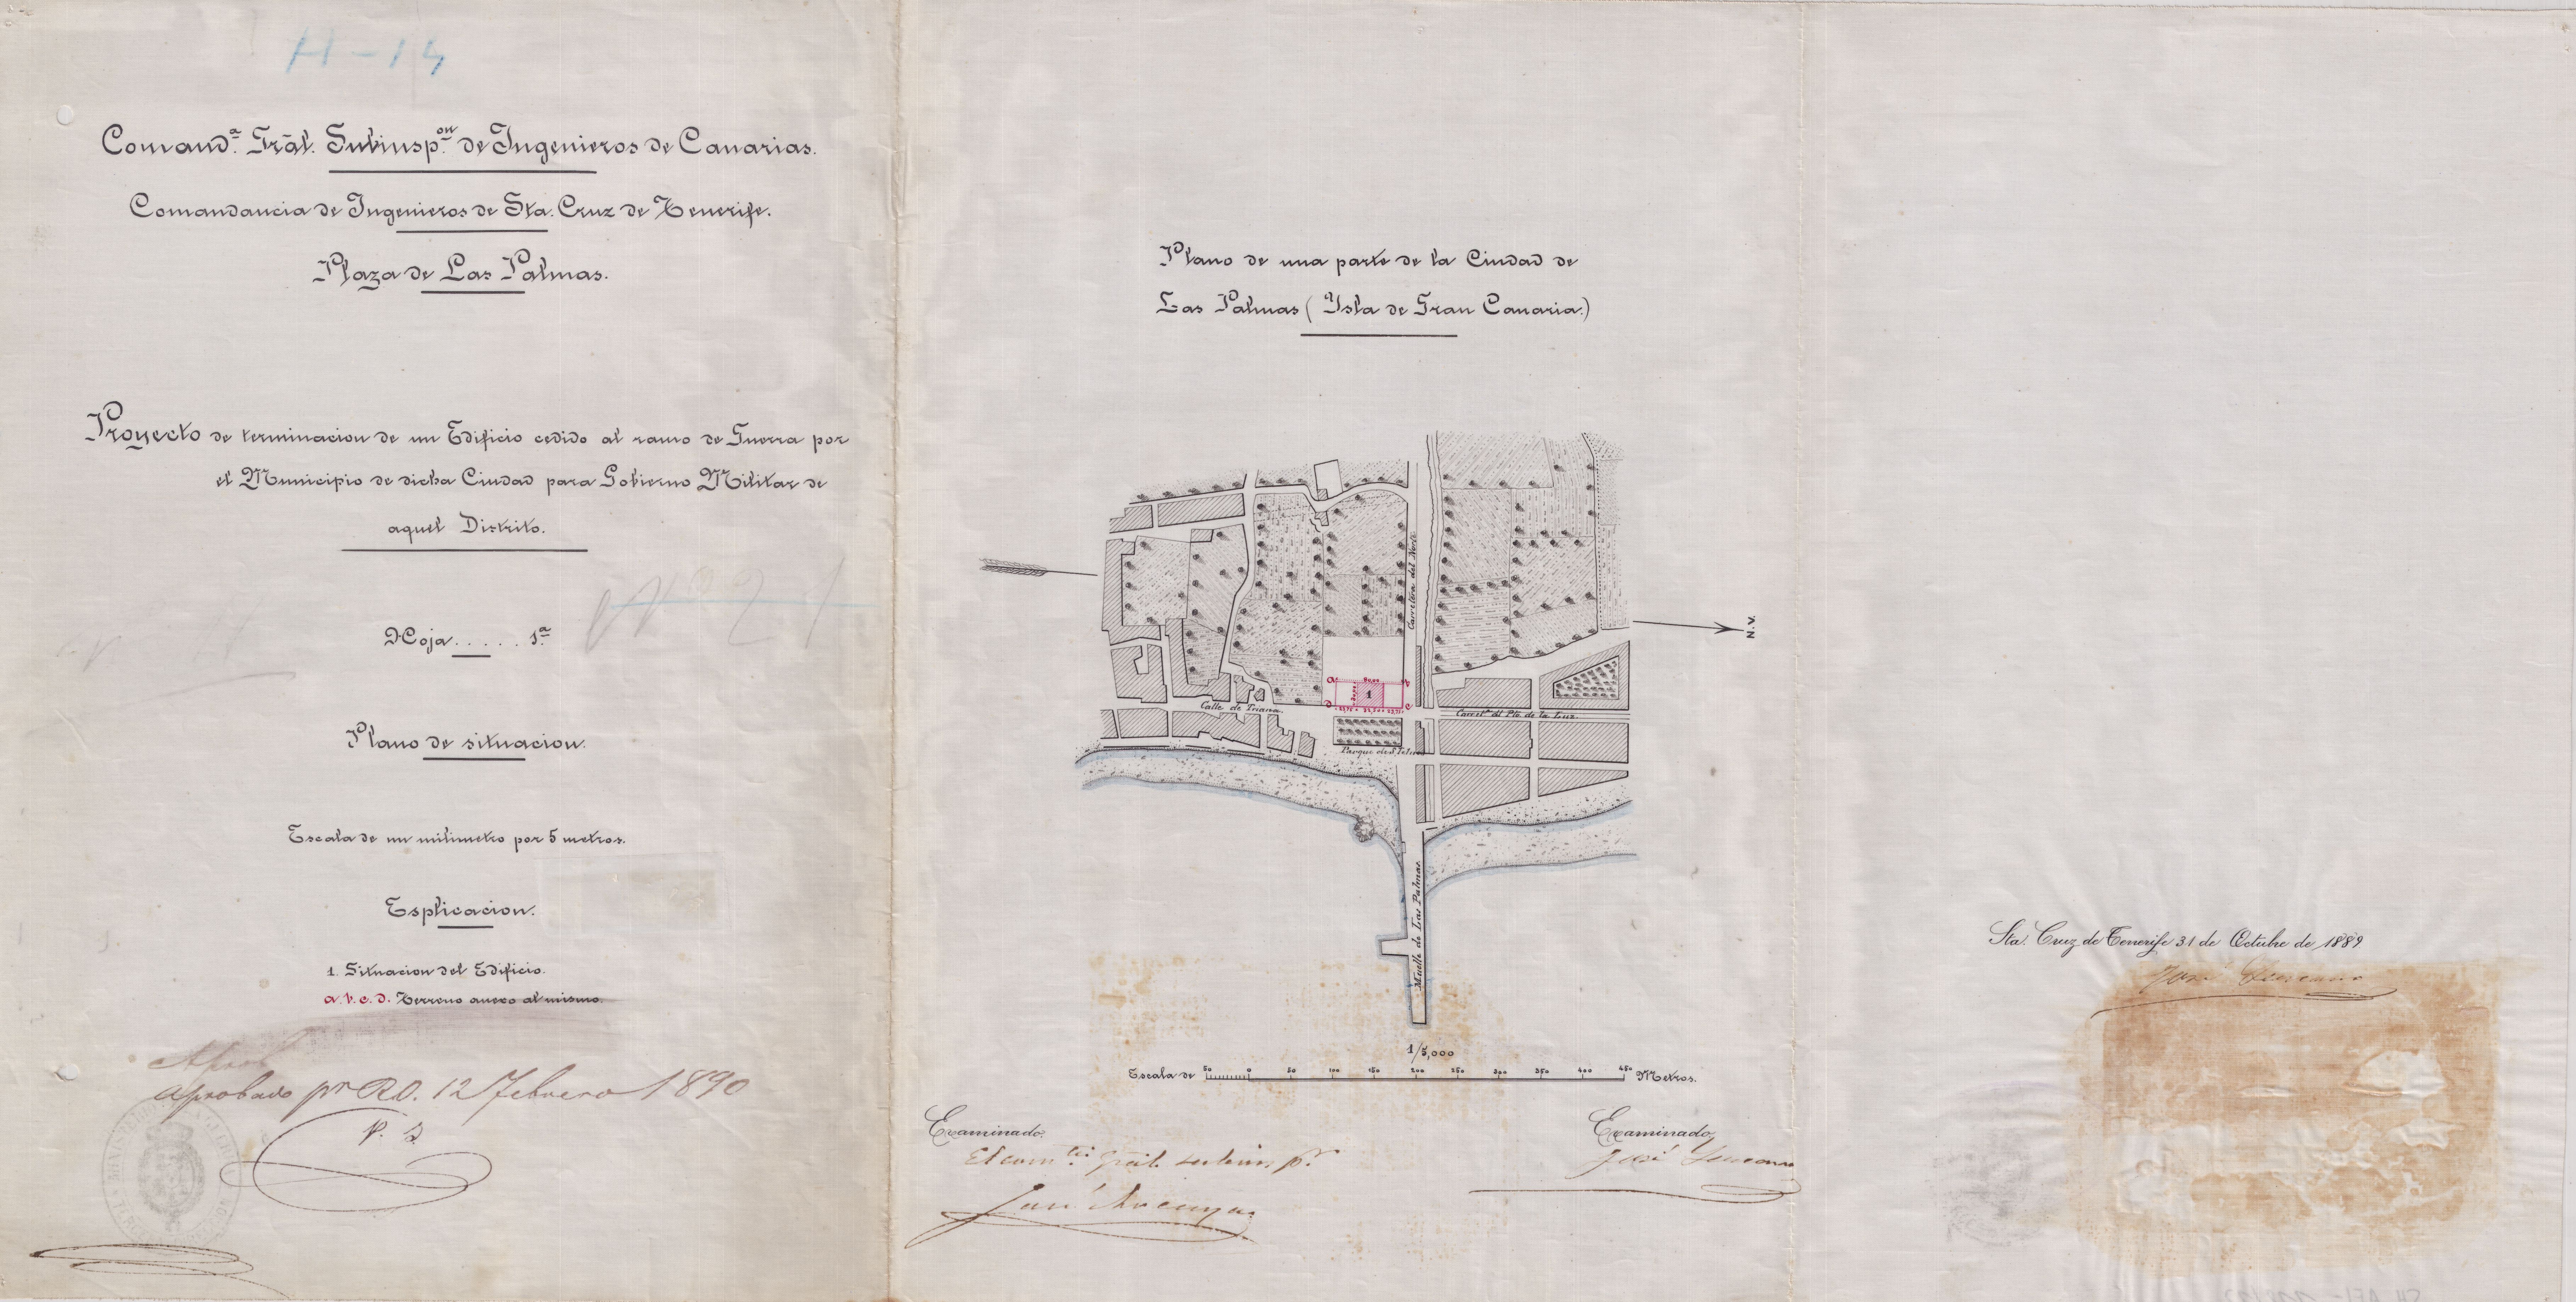 H-14
Comand.ª Grãl. Subinsp.on de Ingenieros de Canarias.
Comandancia de Ingenieros de Sta. Cruz de Tenerife.
Plaza de Las Palmas.
Proyecto de terminacion de un Edificio cedido al ramo de Guerra por
el Municipio de dicha Ciudad para Gobierno Militar de
aquel Distrito.
Hoja..... 1.ª
Plano de situacion.
Escala de un milimetro por 5 metros.
Esplicacion.
1. Situacion del Edificio.
a. b. c. d. Terreno anexo al mismo.
Aprob
Aprobado pr RO. 12 Febrero 1890
Plano de una parte de la Ciudad de
Las Palmas (Ysla de Gran Canaria.)
Carretera del Norte
N.V.
a
b
1
d
c
Calle de Triana.
Carret.ª del Pto. de la Luz.
Parque de S. Telmo
Muelle de Las Palmas
1/5,000
Escala de 50 0 50 100 150 200 250 300 350 400 450 Metros.
Examinado.
El com.te gral. subinsp.r
Examinado,
José
Sta. Cruz de Tenerife 31 de Octubre de 1889
José